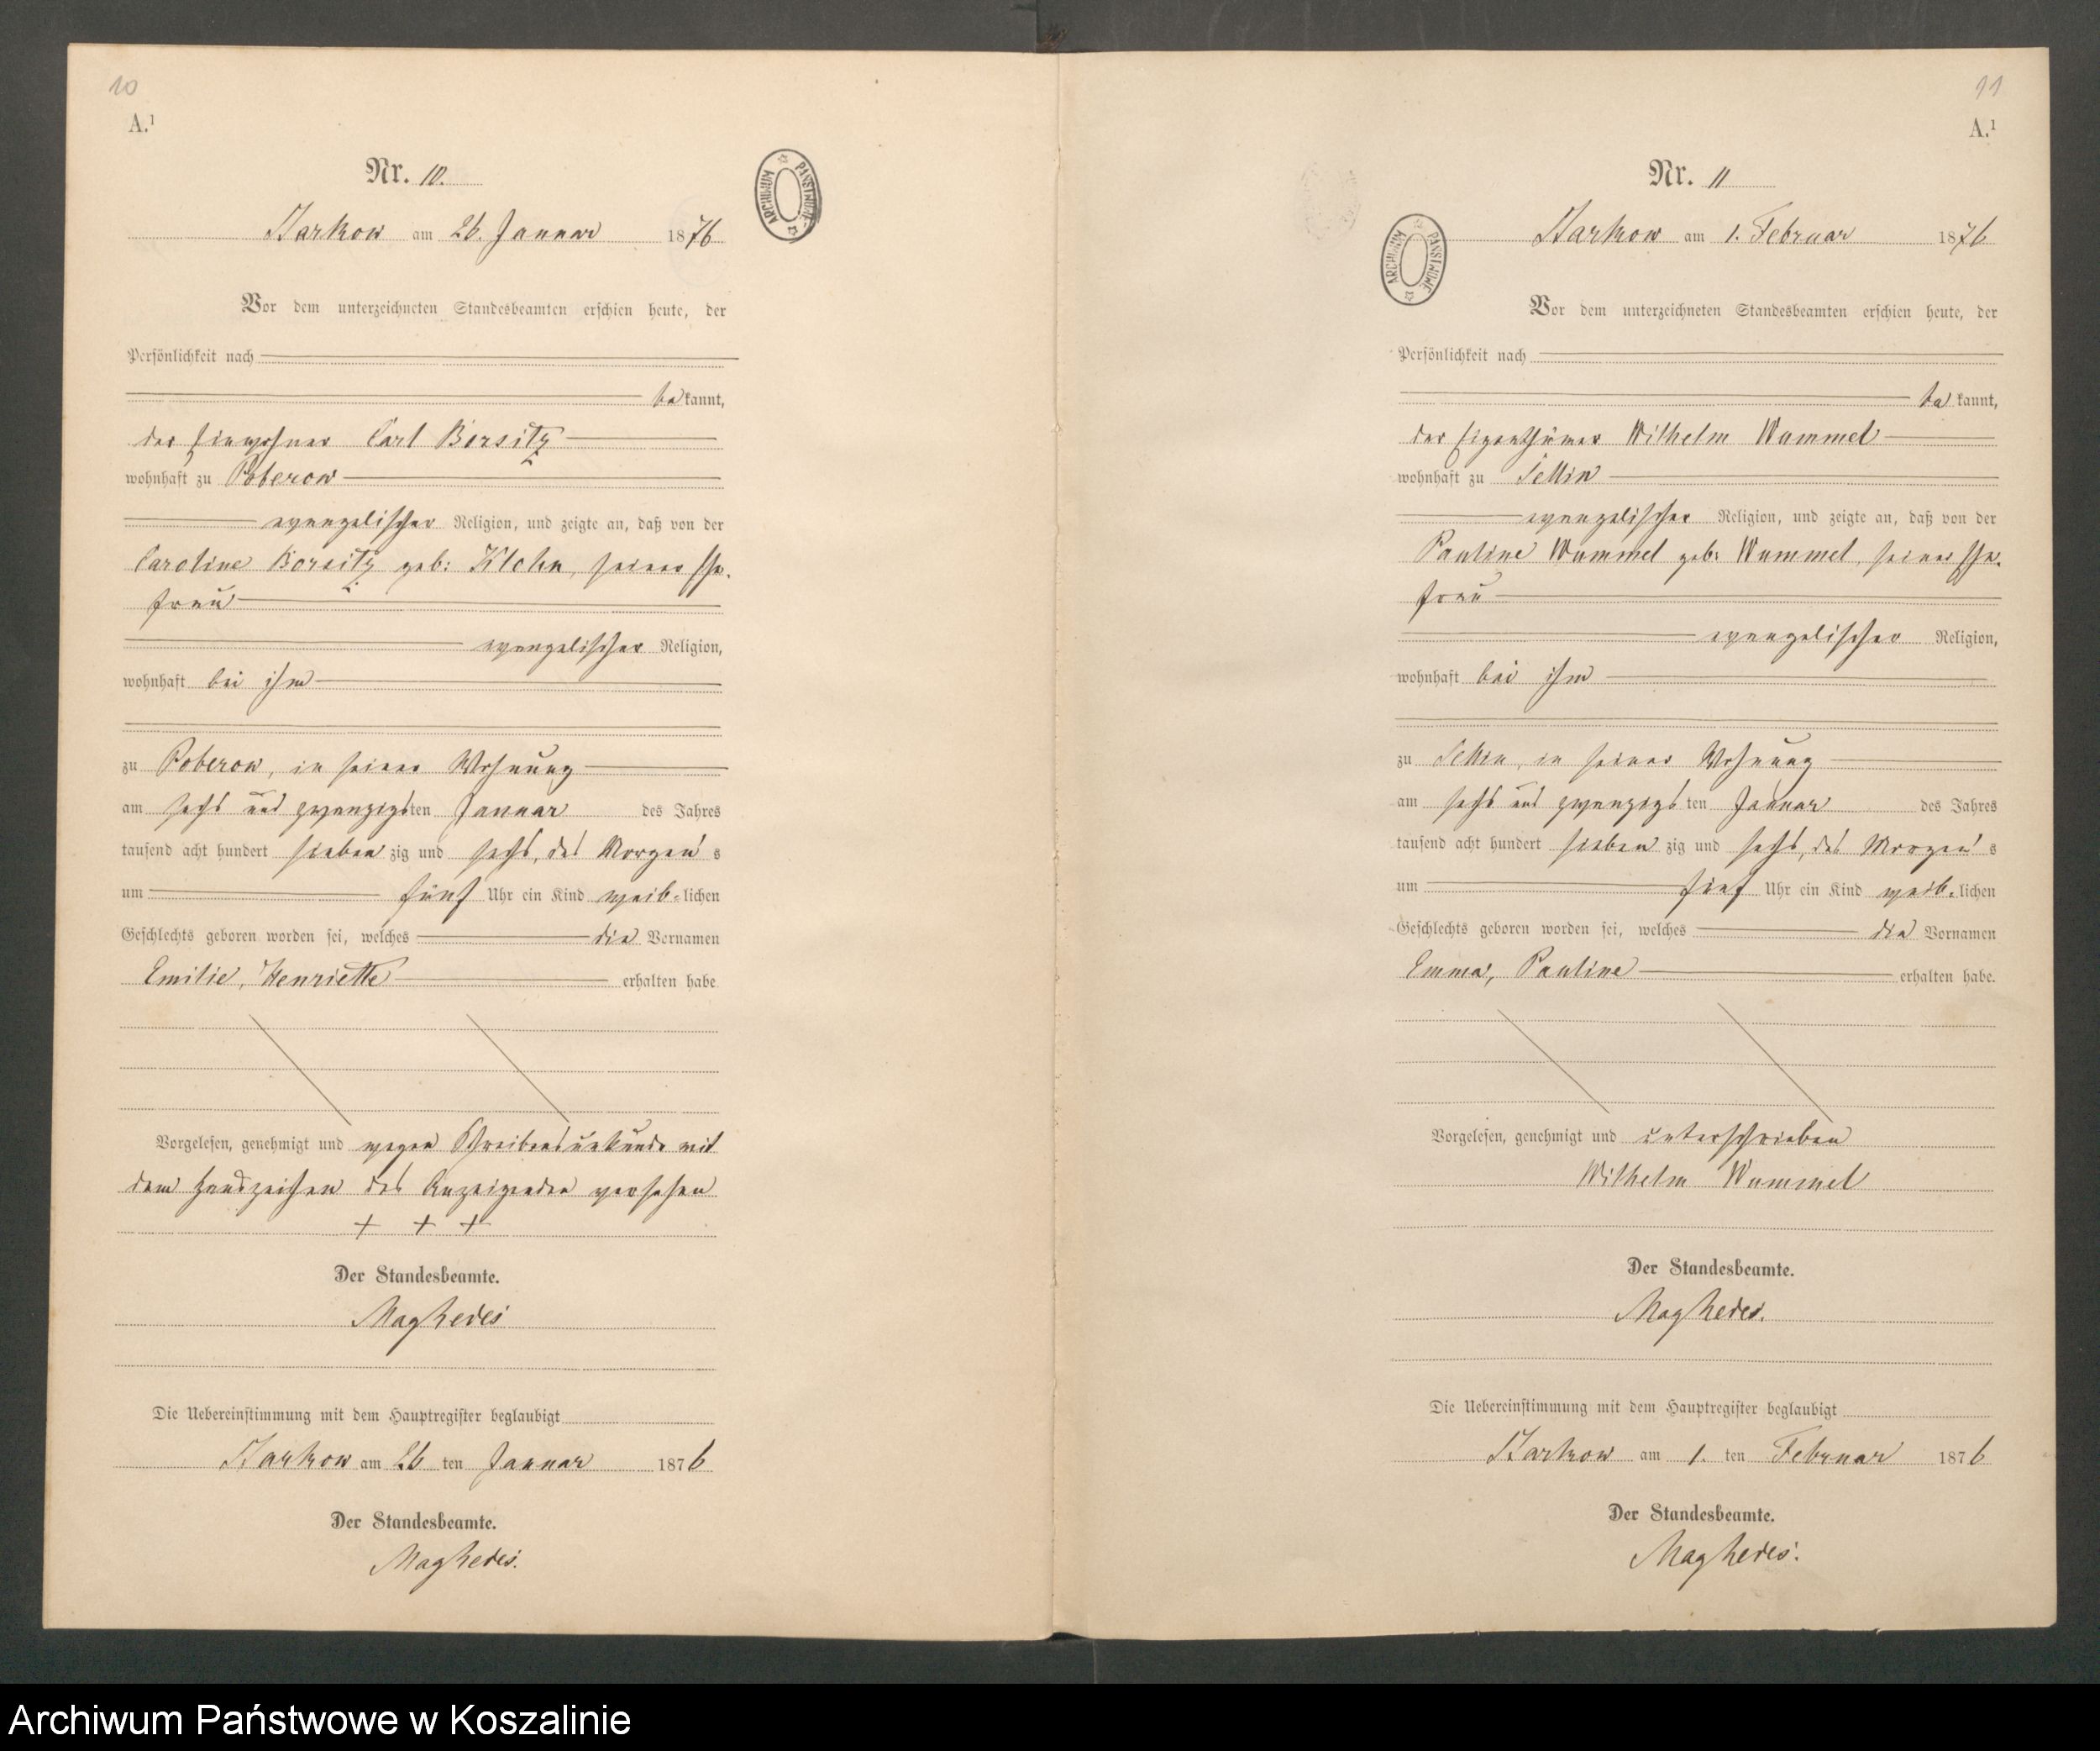 10
A.¹
Nr. 10.
Barkow am 26. Januar 1876
ARCHIWUM PAŃSTWOWE
Vor dem unterzeichneten Standesbeamten erschien heute, der
Persönlichkeit nach
bekannt,
der Einwohner Carl Borsitz
wohnhaft zu Poberow
evangelischer Religion, und zeigte an, daß von der
Caroline Borsitz geb: Klohn, seiner Ehe-
frau
evangelischer Religion,
wohnhaft bei ihm
zu Poberow, in seiner Wohnung
am sechs und zwanzigsten Januar des Jahres
tausend acht hundert siebenzig und sechs, des Morgens
um fünf Uhr ein Kind weib-lichen
Geschlechts geboren worden sei, welches die Vornamen
Emilie, Henriette erhalten habe
Vorgelesen, genehmigt und wegen Schreibensunkunde mit
dem Handzeichen des Anzeigenden versehen
+ + +
Der Standesbeamte.
Die Uebereinstimmung mit dem Hauptregister beglaubigt
Barkow am 26 ten Januar 1876
Der Standesbeamte.
11
A.¹
Nr. 11
Barkow am 1. Februar 1876
ARCHIWUM PAŃSTWOWE
Vor dem unterzeichneten Standesbeamten erschien heute, der
Persönlichkeit nach
bekannt,
der Eigenthümer Wilhelm Wummel
wohnhaft zu Sellin
evangelischer Religion, und zeigte an, daß von der
Pauline Wummel geb: Wummel, seiner Ehe-
frau
evangelischer Religion,
wohnhaft bei ihm
zu Sellin, in seiner Wohnung
am sechs und zwanzigsten Januar des Jahres
tausend acht hundert siebenzig und sechs, des Morgens
um fünf Uhr ein Kind weib-lichen
Geschlechts geboren worden sei, welches die Vornamen
Emma, Pauline erhalten habe.
Vorgelesen, genehmigt und unterschrieben
Wilhelm Wummel
Der Standesbeamte.
Die Uebereinstimmung mit dem Hauptregister beglaubigt
Barkow am 1. ten Februar 1876
Der Standesbeamte.
Archiwum Państwowe w Koszalinie